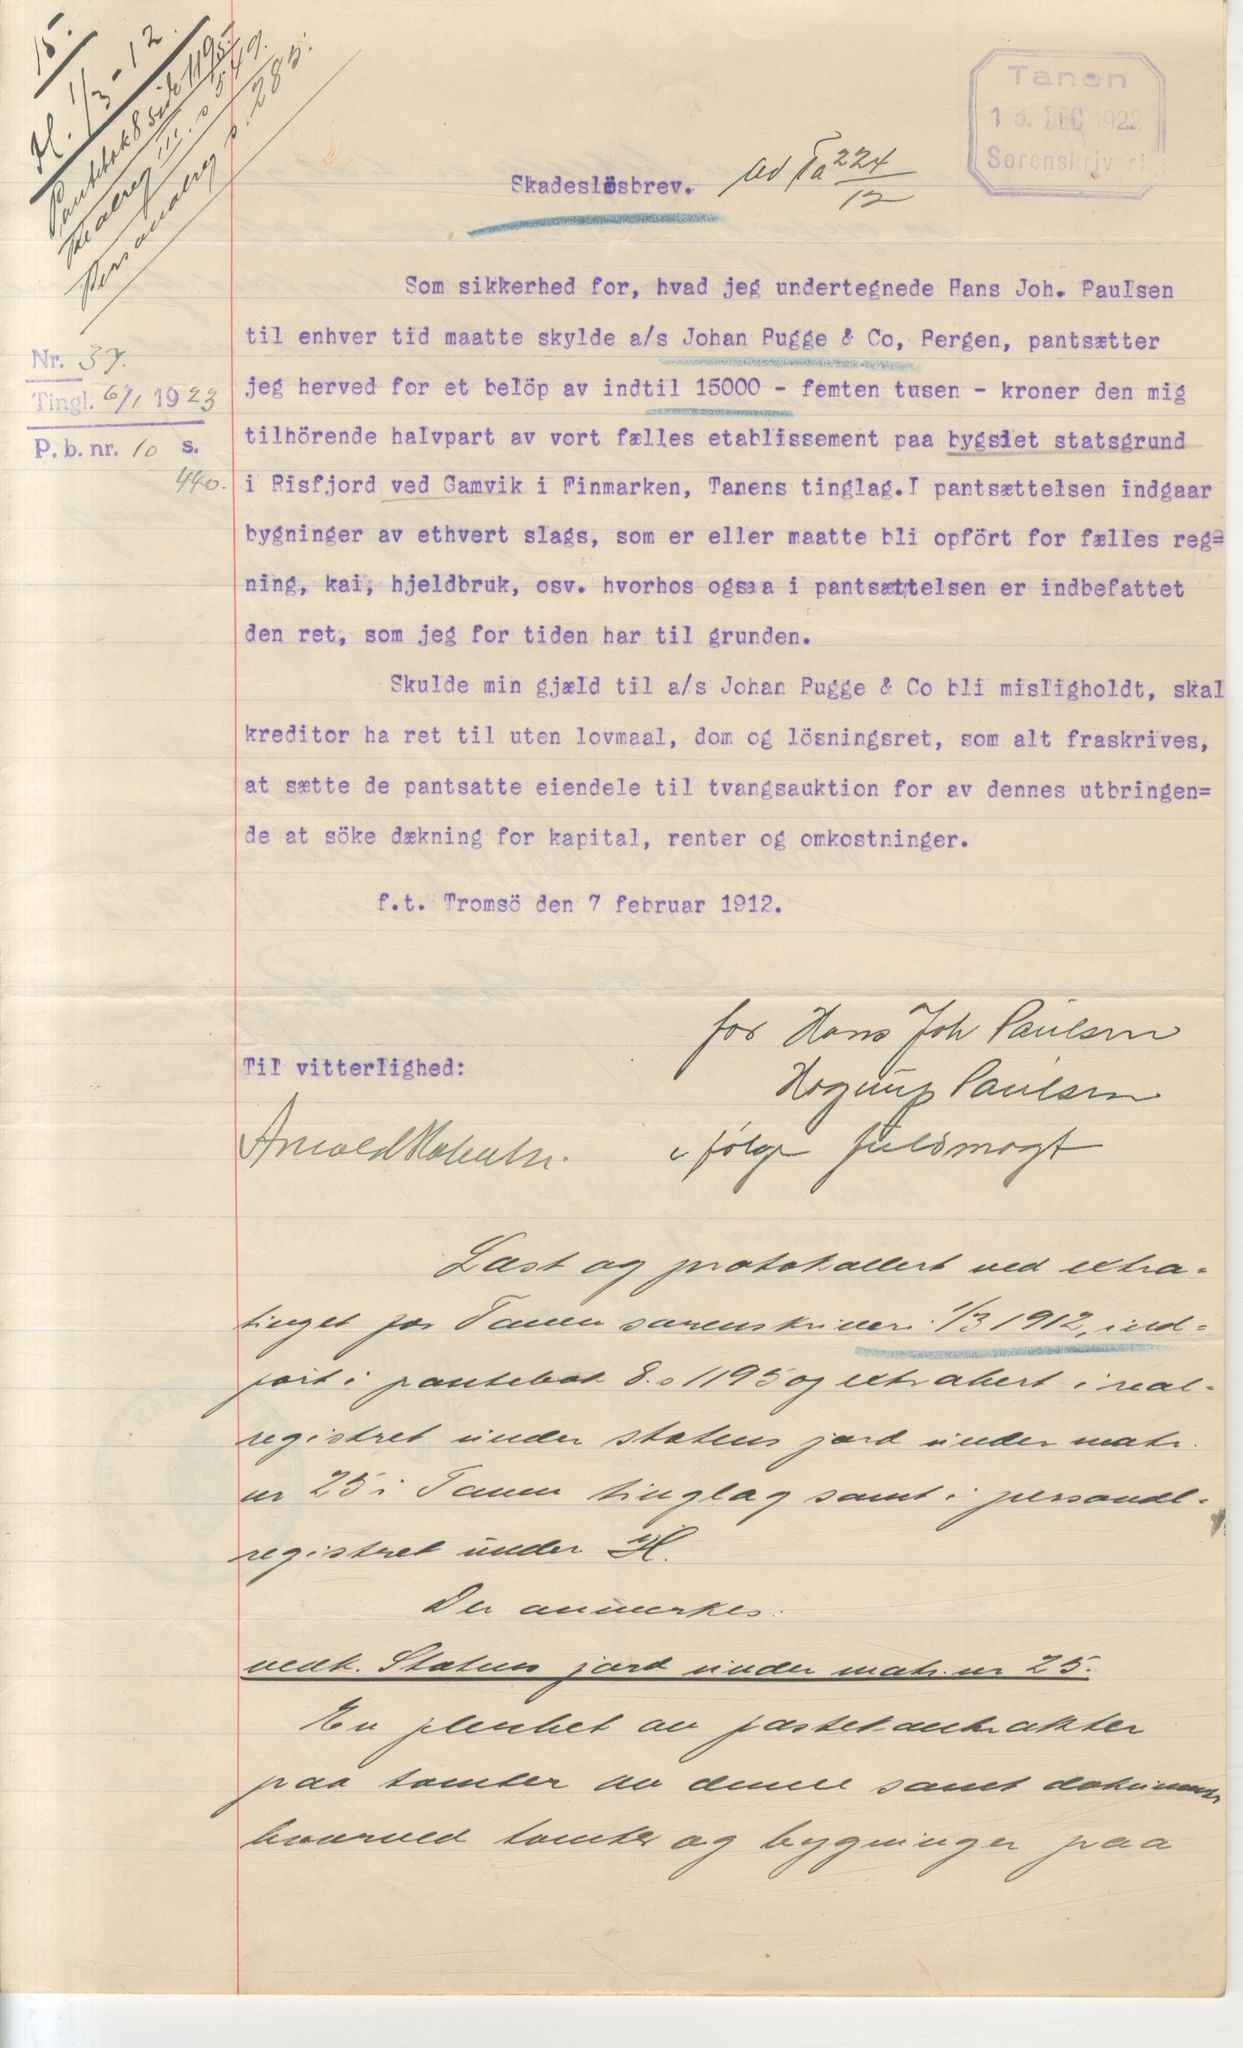 15.
H. 1/3-12.
Pantebok 8 side 1195.
Realreg III. s 549.
Personalreg s. 285.
Tanen
13. DEC 1922
Sorenskriveri
Skadeslösbrev.
ad Ta 224/12
Som sikkerhed for, hvad jeg undertegnede Hans Joh. Paulsen
til enhver tid maatte skylde a/s Johan Bugge & Co, Bergen, pantsætter
jeg herved for et belöp av indtil 15000 - femten tusen - kroner den mig
tilhörende halvpart av vort fælles etablissement paa bygslet statsgrund
i Risfjord ved Gamvik i Finmarken, Tanens tinglag. I pantsættelsen indgaar
bygninger av ethvert slags, som er eller maatte bli opfört for fælles reg=
ning, kai, hjeldbruk, osv. hvorhos ogsaa i pantsættelsen er indbefattet
den ret, som jeg for tiden har til grunden.
Nr. 37.
Tingl. 6/1 1923
P. b. nr. 10 s.
440.
Skulde min gjæld til a/s Johan Bugge & Co bli misligholdt, skal
kreditor ha ret til uten lovmaal, dom og lösningsret, som alt fraskrives,
at sætte de pantsatte eiendele til tvangsauktion for av dennes utbringen=
de at söke dækning for kapital, renter og omkostninger.
f.t. Tromsö den 7 februar 1912.
for Hans Joh Paulsen
Paulsen
i følge fuldmagt
Til vitterlighed:
Læst og protokollert ved extra-
tinget for Tanen sorenskriveri 1/3 1912, ind-
ført i pantebok 8. s 1195 og extrahert i real-
registret under statens jord under matr.
nr 25 i Tanen tinglag samt i personal-
registret under H.
Der anmerkes:
vedk. Statens jord under matr. nr 25.
En flerhet av fæstekontrakter
paa tomter av denne samt dokumenter
hvorved tomter og bygninger paa